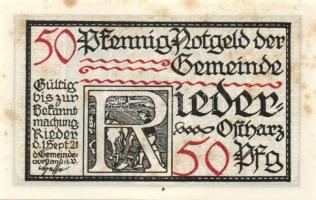 50 Pfennig Notgeld der
Gemeinde
Rieder
Ostharz
50 Pfg
Gültig
bis zur
Bekannt
machung
Rieder
d. 1. Sept 21
d. Gemeinde-
vorstand i. V.